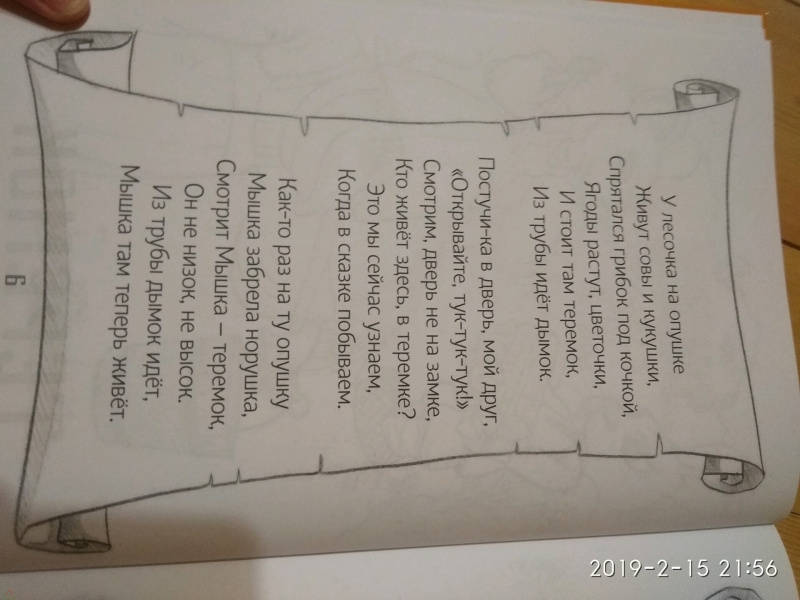 У лесочка на опушке
Живут совы и кукушки,
Спрятался грибок под кочкой,
Ягоды растут, цветочки,
И стоит там теремок,
Из трубы идёт дымок.
Постучи-ка в дверь, мой друг,
«Открывайте, тук-тук-тук!»
Смотрим, дверь не на замке,
Кто живёт здесь, в теремке?
Это мы сейчас узнаем,
Когда в сказке побываем.
Как-то раз на ту опушку
Мышка забрела норушка,
Смотрит Мышка – теремок,
Он не низок, не высок.
Из трубы дымок идёт,
Мышка там теперь живёт.
6
2019-2-15 21:56